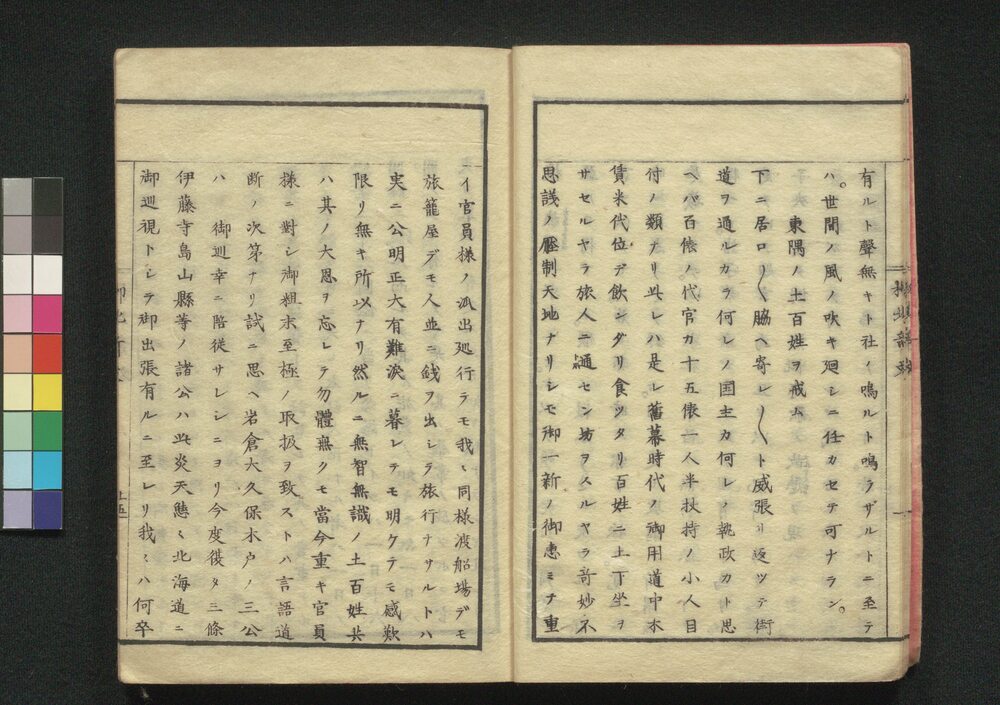 有ルト聲無キト社ノ鳴ルト鳴ラザルトニ至テ
ハ。世間ノ風ノ吹キ廻シニ任カセテ可ナラン。
東隅ノ土百姓ヲ戒ム
下ニ居ロ〳〵脇ヘ寄レ〳〵ト威張リ返ツテ街
道ヲ通ルカラ何レノ国主カ何レノ執政カト思
ヘバ百俵ノ代官カ十五俵一人半扶持ノ小人目
付ノ類ナリ此レハ是レ舊幕時代ノ御用道中木
賃米代位デ飲ンダリ食ツタリ百姓ニ土下坐ヲ
サセルヤラ旅人ニ通セン坊ヲスルヤラ奇妙不
思議ノ壓制天地ナリシモ御一新ノ御恵ミテ重
イ官員様ノ派出廻行ラモ我〻同様渡船場デモ
旅籠屋デモ人並ニ銭ヲ出シラ旅行ナサルトハ
実ニ公明正大有難涙ニ暮レテモ明ケテモ感歎
限リ無キ所以ナリ然ルニ無智無識ノ土百姓共
ハ其ノ大恩ヲ忘レテ勿體無クモ當今重キ官員
様ニ對シ御粗末至極ノ取扱ヲ致ストハ言語道
断ノ次第ナリ試ニ思ヘ岩倉大久保木戸ノ三公
ハ 御巡幸ニ陪從サレシニヨリ今度復タ三條
伊藤寺島山縣等ノ諸公ハ此炎天態〻北海道ニ
御巡視トシテ御出張有ルニ至レリ我〻ハ何卒